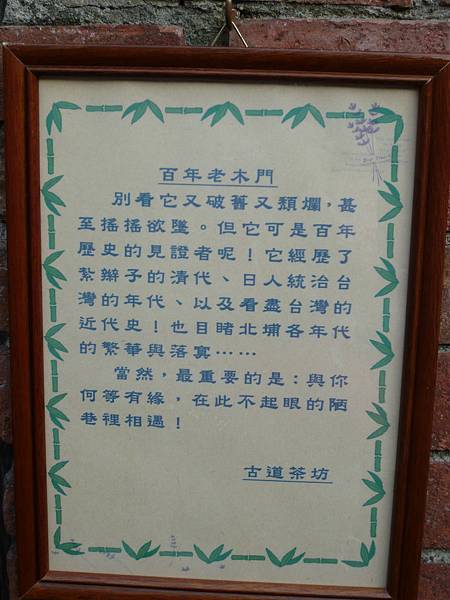 百年老木門
別看它又破舊又頹爛，甚
至搖搖欲墜。但它可是百年
歷史的見證者呢！它經歷了
紮辮子的清代、日人統治台
灣的年代、以及看盡台灣的
近代史！也目睹北埔各年代
的繁華與落寞……
當然，最重要的是：與你
何等有緣，在此不起眼的陋
巷裡相遇！
古道茶坊